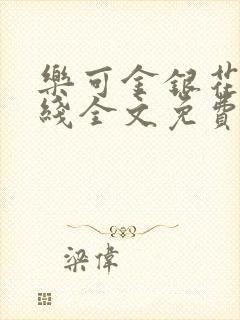 樂可金銀花
綫全文免費
梁偉